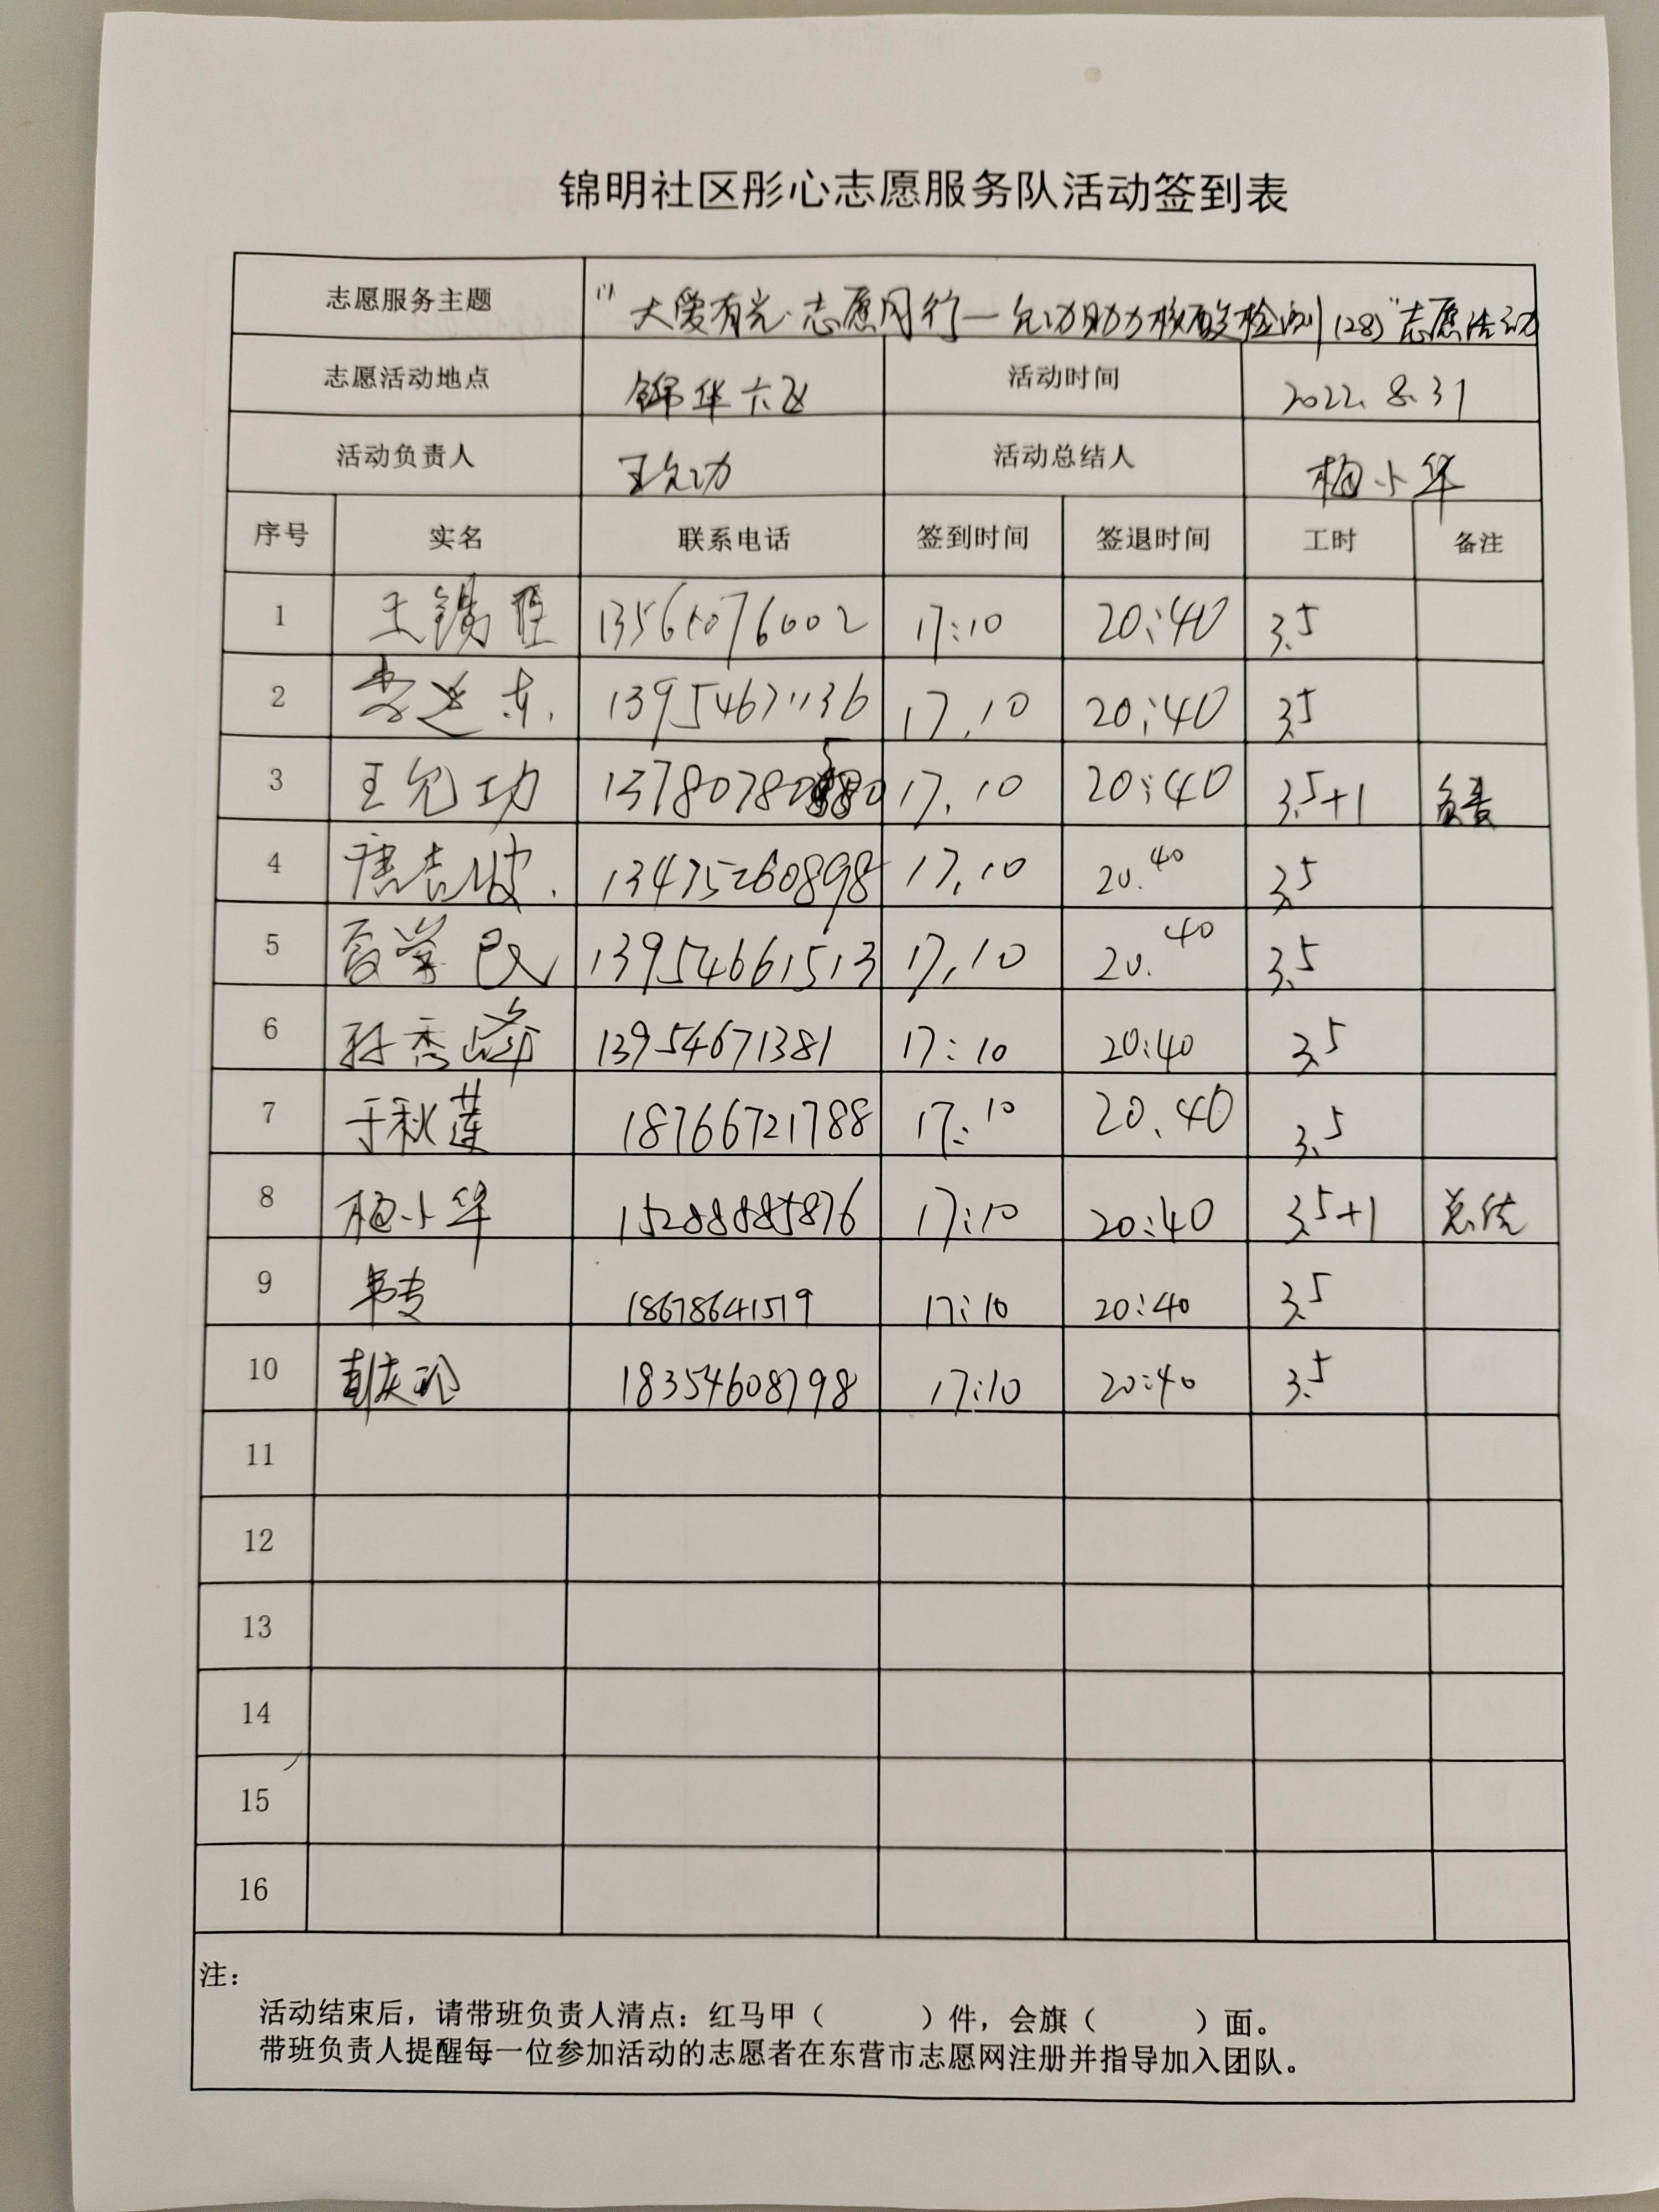 锦明社区彤心志愿服务队活动签到表
志愿服务主题 "大爱有光·志愿同行—允功助力核酸检测(28)"志愿活动
志愿活动地点 锦华六区 活动时间 2022.8.31
活动负责人 王允功 活动总结人 梅小华
序号 实名 联系电话 签到时间 签退时间 工时 备注
1 王锡臣 17:10 20:40 3.5
2 李延东. 13954671136 17.10 20:40 3.5
3 王允功 17.10 20:40 3.5+1 负责
4 唐志波. 13475260898 17.10 20.40 3.5
5 学民 13954661513 17.10 20.40 3.5
6 孙秀峰 13954671381 17:10 20:40 3.5
7 于秋莲 18766721788 17:10 20.40 3.5
8 梅小华 15288885876 17:10 20:40 3.5+1 总结
9 18678641519 17:10 20:40 3.5
10 彭庆 18354608798 17:10 20:40 3.5
11
12
13
14
15
16
注:
活动结束后，请带班负责人清点：红马甲（ ）件，会旗（ ）面。
带班负责人提醒每一位参加活动的志愿者在东营市志愿网注册并指导加入团队。